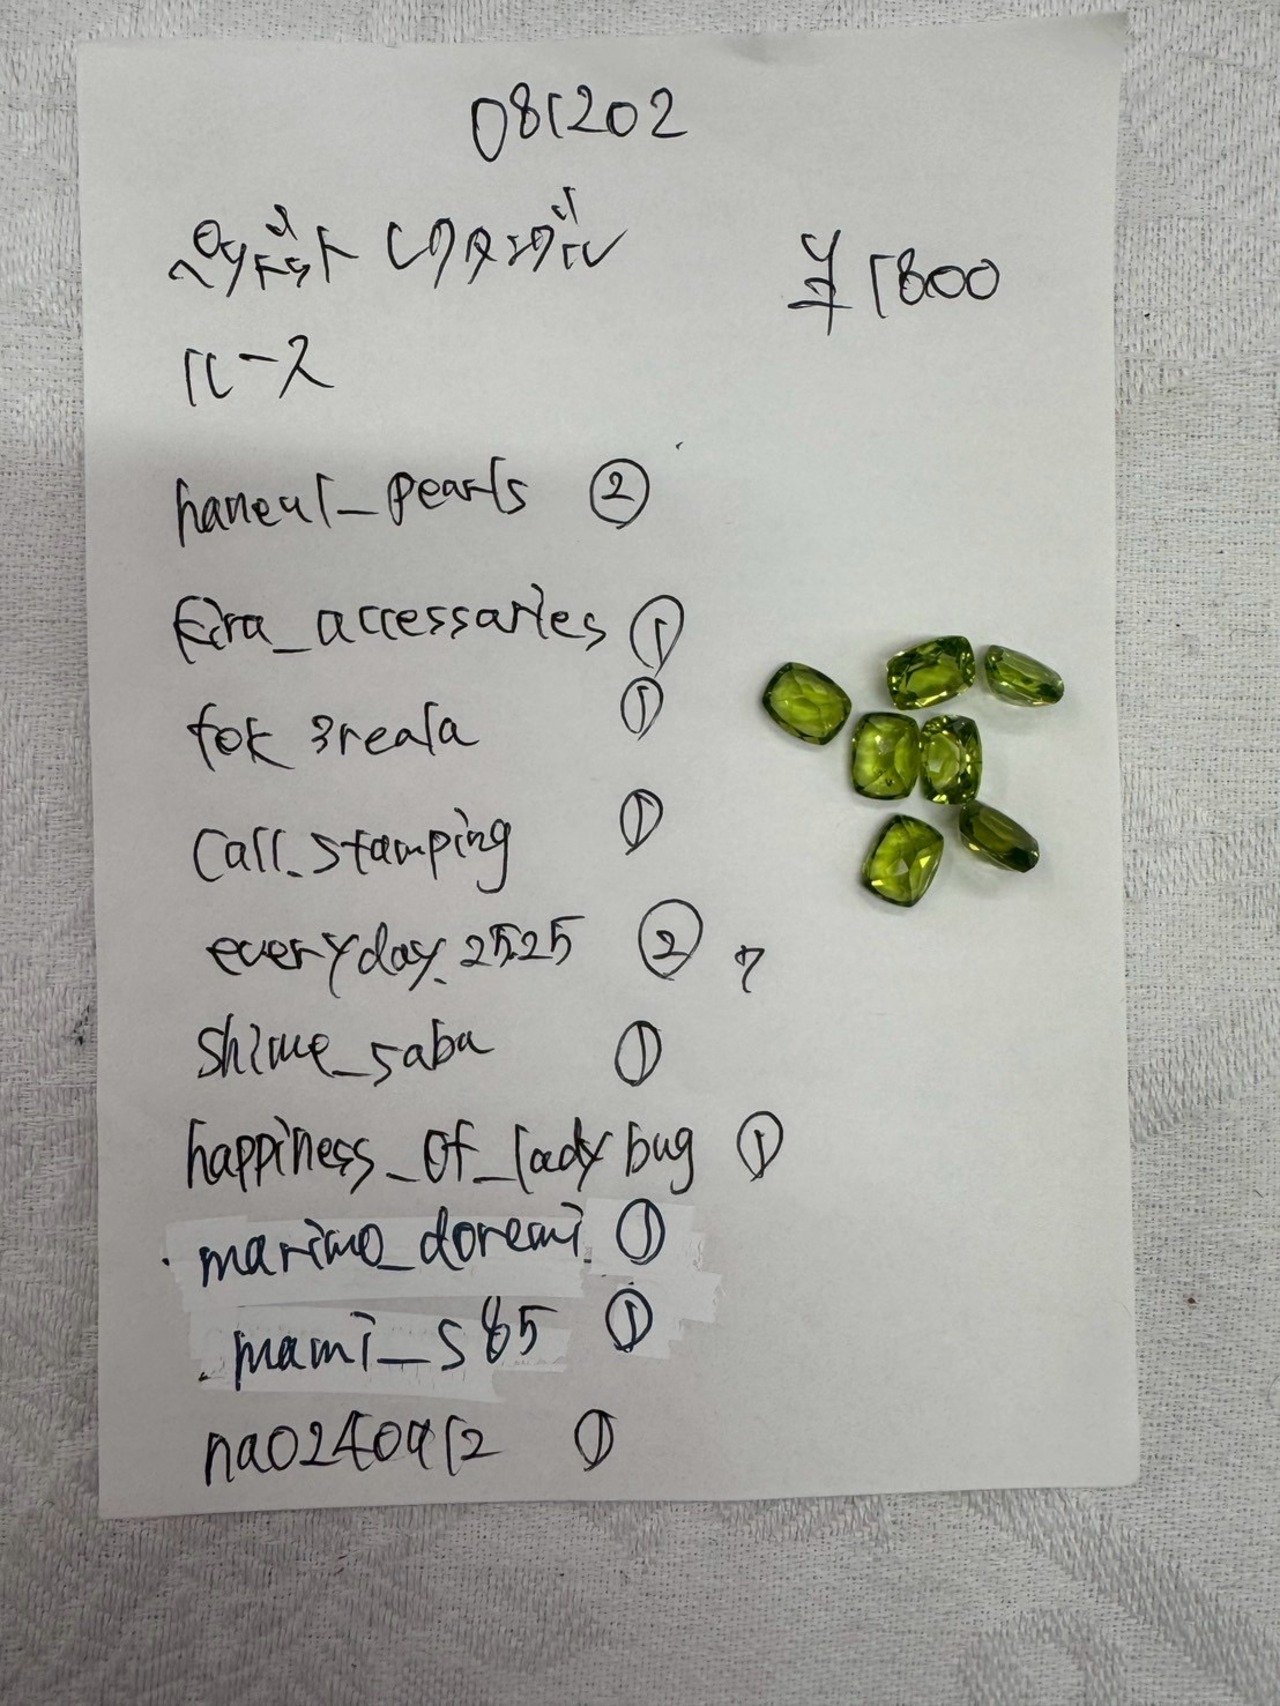 081202
ペリドット レクタングル
¥1800
ルース
haneul_pearls ②
Eira_accessaries ①
fok 3reala ①
Call.stamping ①
everyday.2525 ② 7
shime_saba ①
happiness_of_ladybug ①
marimo_doremi ①
mami_s85 ①
na0240912 ①